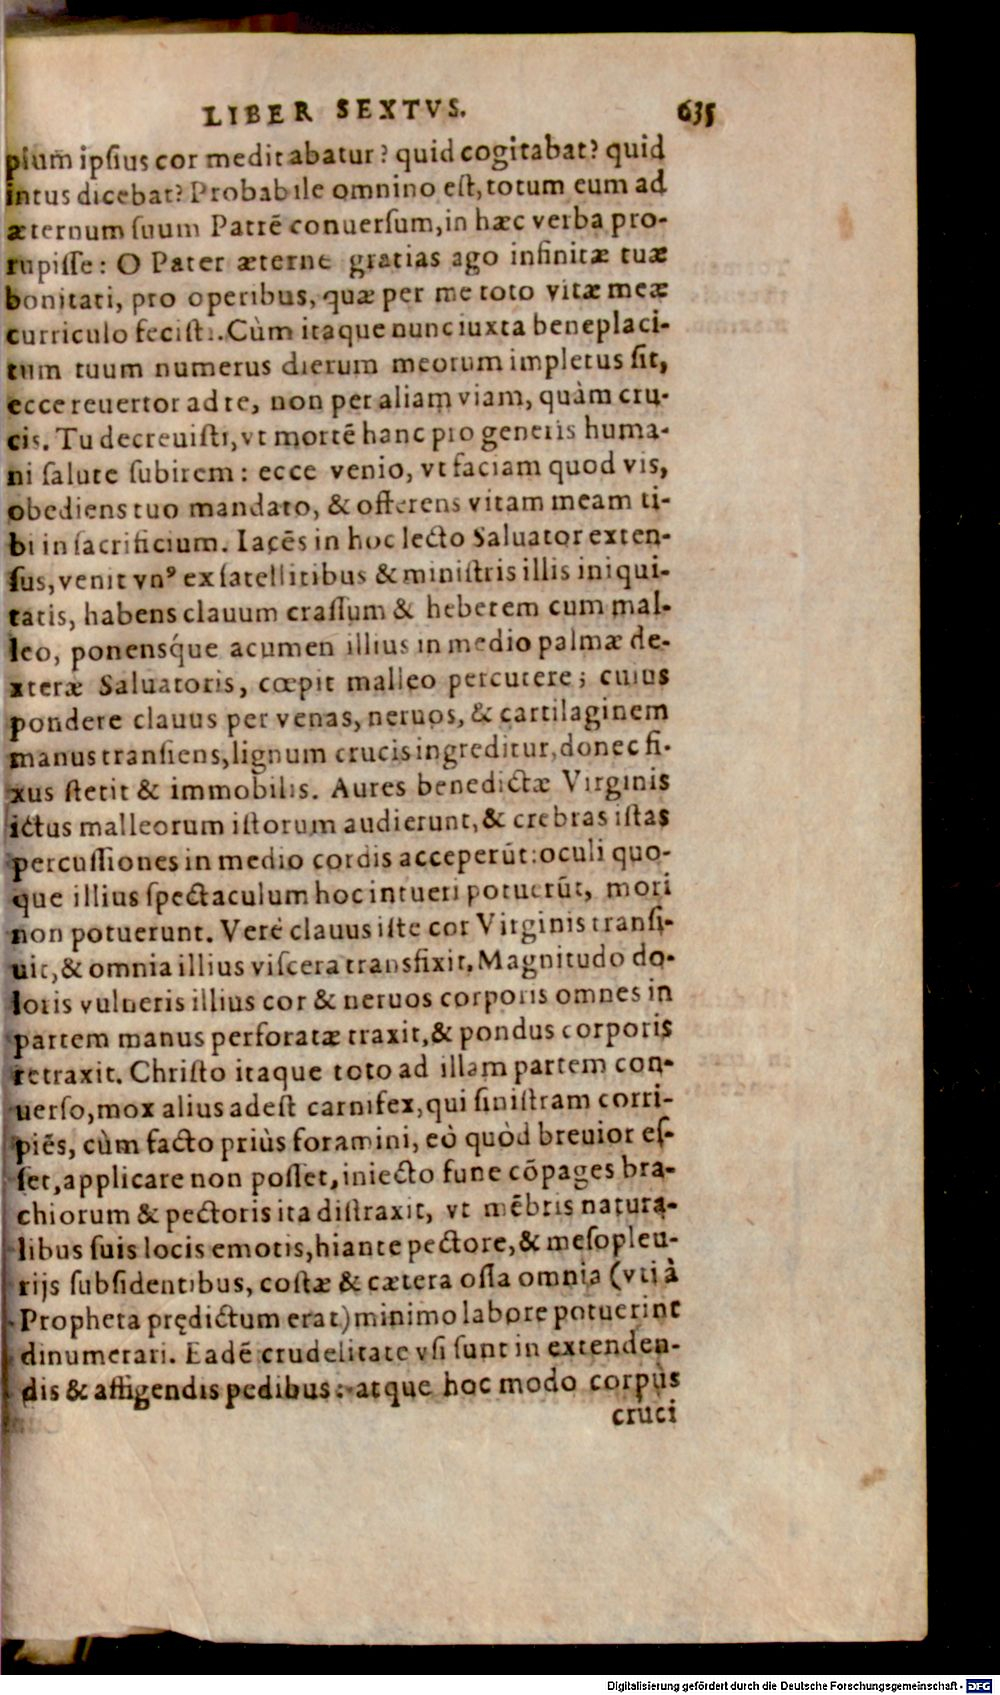 LIBER SEXTVS. 635
pium ipſius cor meditabatur? quid cogitabat? quid
intus dicebat? Probabile omnino eſt, totum eum ad
æternum ſuum Patrē conuerſum, in hæc verba pro-
rupiſſe: O Pater æterne gratias ago infinitæ tuæ
bonitati, pro operibus, quæ per me toto vitæ meæ
curriculo feciſti. Cùm itaque nunc iuxta beneplaci-
tum tuum numerus dierum meorum impletus ſit,
ecce reuertor ad te, non per aliam viam, quàm cru-
cis. Tu decreuiſti, vt mortē hanc pro generis huma-
ni ſalute ſubirem: ecce venio, vt faciam quod vis,
obediens tuo mandato, & offerens vitam meam ti-
bi in ſacrificium. Iacēs in hoc lecto Saluator exten-
ſus, venit vnꝰ ex ſatellitibus & miniſtris illis iniqui-
tatis, habens clauum craſſum & hebetem cum mal-
leo, ponensq́ue acumen illius in medio palmæ de-
xteræ Saluatoris, cœpit malleo percutere; cuius
pondere clauus per venas, neruos, & cartilaginem
manus tranſiens, lignum crucis ingreditur, donec fi-
xus ſtetit & immobilis. Aures benedictæ Virginis
ictus malleorum iſtorum audierunt, & crebras iſtas
percuſſiones in medio cordis acceperūt: oculi quo-
que illius ſpectaculum hoc intueri potuerūt, mori
non potuerunt. Verè clauus iſte cor Virginis tranſi-
uit, & omnia illius viſcera transfixit. Magnitudo do-
loris vulneris illius cor & neruos corporis omnes in
partem manus perforatæ traxit, & pondus corporis
retraxit. Chriſto itaque toto ad illam partem con-
uerſo, mox alius adeſt carnifex, qui ſiniſtram corri-
piēs, cùm facto priùs foramini, eò quòd breuior eſ-
ſet, applicare non poſſet, iniecto fune cōpages bra-
chiorum & pectoris ita diſtraxit, vt mēbris natura-
libus ſuis locis emotis, hiante pectore, & meſopleu-
rijs ſubſidentibus, coſtæ & cætera oſſa omnia (vti à
Propheta prędictum erat) minimo labore potuerint
dinumerari. Eadē crudelitate vſi ſunt in extenden-
dis & affigendis pedibus: atque hoc modo corpus
cruci
Digitalisierung gefördert durch die Deutsche Forschungsgemeinschaft - DFG